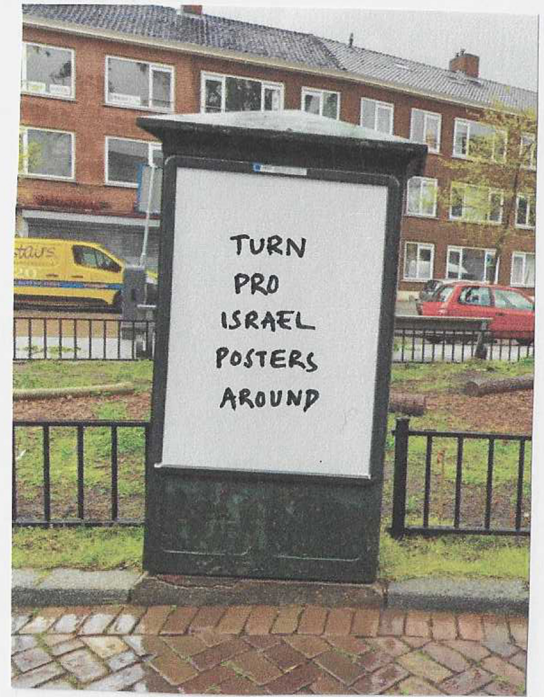 TURN
PRO
ISRAEL
POSTERS
AROUND